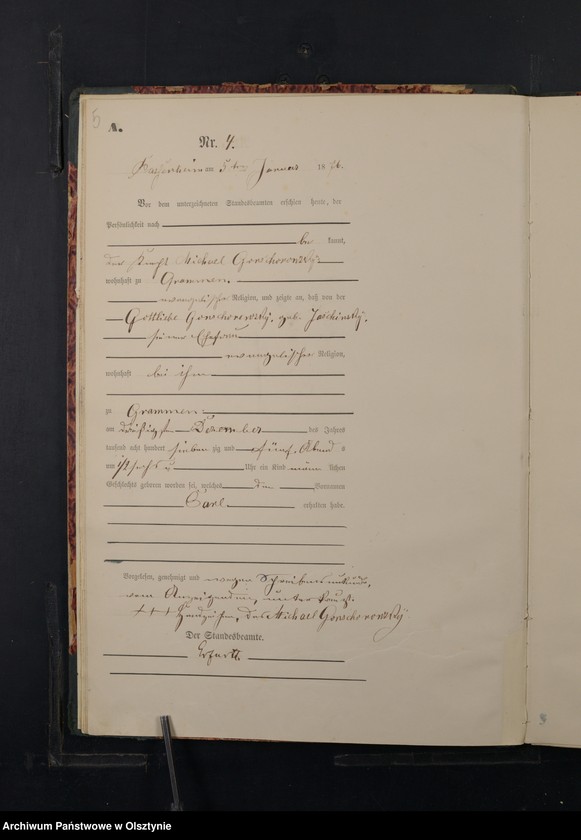 5
A.
Nr. 4.
am 5ten Januar 1876.
Vor dem unterzeichneten Standesbeamten erschien heute, der
Persönlichkeit nach
be kannt,
der Knecht Michael Gorschorowsky
wohnhaft zu Grammen
evangelischer Religion, und zeigte an, daß von der
Gottliebe Gorschorowsky, geb. Jaschinsky,
seiner Ehefrau
evangelischer Religion,
wohnhaft bei ihm
zu Grammen
am dreißigsten Dezember des Jahres
tausend acht hundert sieben zig und fünf, Abends
um Uhr ein Kind männlichen
Geschlechts geboren worden sei, welches den Vornamen
Carl
erhalten habe.
Vorgelesen, genehmigt und wegen Schreibensunkunde
vom Anzeigenden,
+++ Handzeichen des Michael Gorschorowsky
Der Standesbeamte.
Archiwum Państwowe w Olsztynie